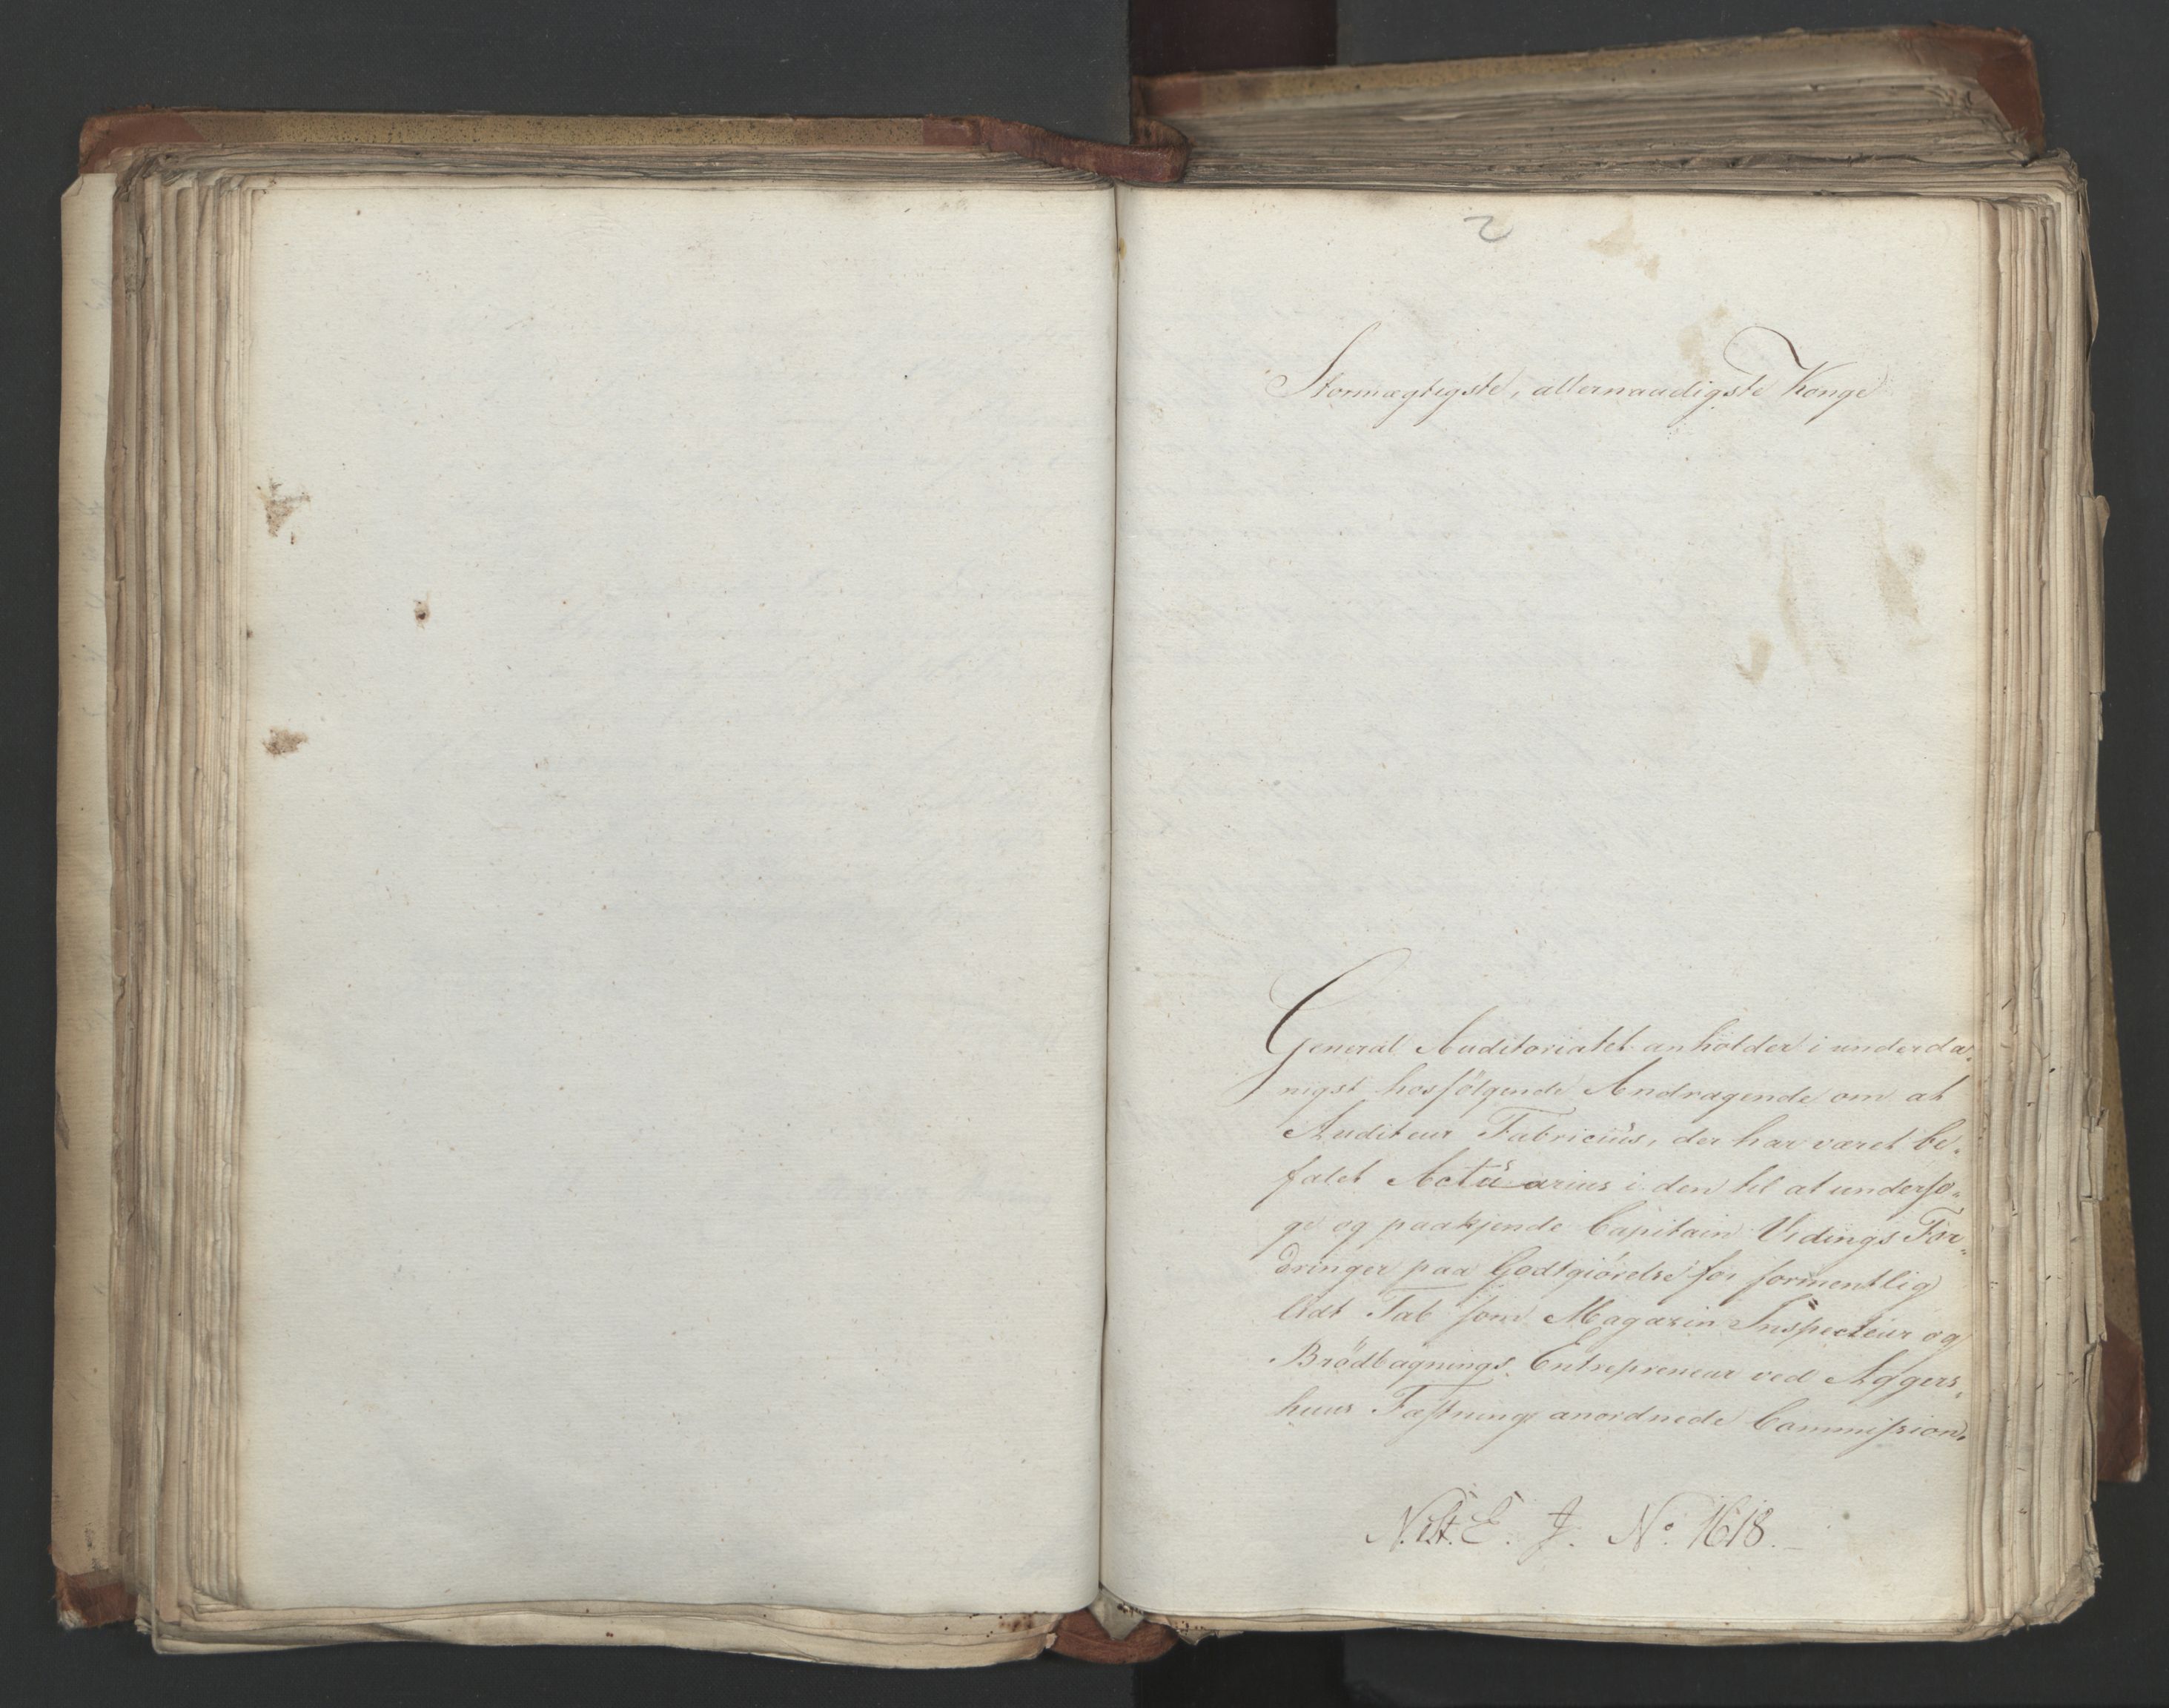 2
Stormægtigste, allernaadigste Konge
General Auditoriatet anholder i underda-
nigst hosfølgende Andragende om at
Auditeur Fabricius, der har været be-
falet Actuarius i den til at undersø-
ge og paakjende Capitain Vidings For-
dringer paa Godtgiørelse for formentlig
lidt Tab som Magazin Inspecteur og
Brødbagnings Entrepreneur ved Aggers-
huus Fæstning anordnede Commission.
E. J. No. 1618.